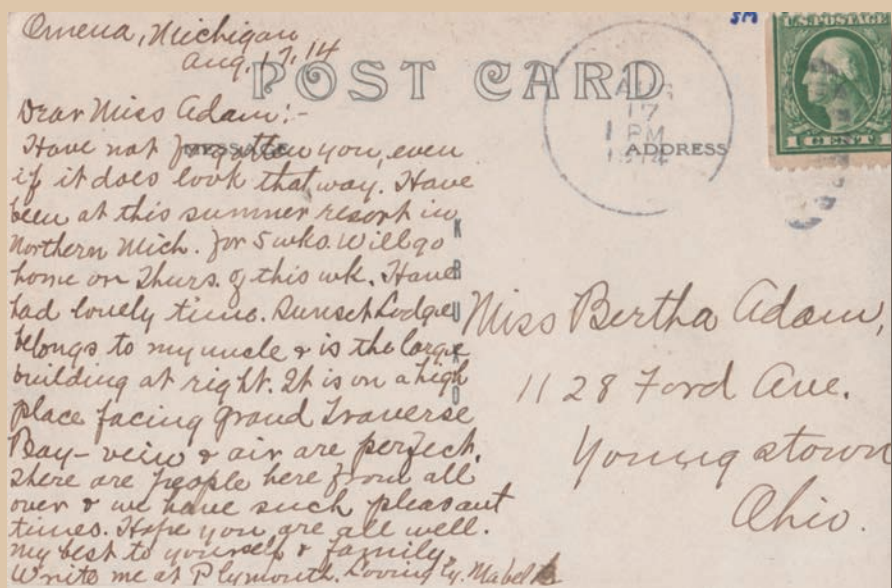 Omena, Michigan
Aug. 17, 14
POST CARD
Dear Miss Adam:-
Have not forgotten you, even
if it does look that way. Have
been at this summer resort in
Northern Mich. for 5 wks. Will go
home on Thurs. of this wk. Have
had lovely time. Sunset Lodge
belongs to my uncle & is the large
building at right. It is on a high
place facing Grand Traverse
Bay - veiw & air are perfect.
There are people here from all
over & we have such pleasant
times. Hope you are all well.
My best to yourself & family.
Write me at Plymouth. Lovingly, Mabel
MESSAGE
ADDRESS
KRUXO
AUG
17
1 PM
1914
U.S. POSTAGE
1 CENT 1
SM
Miss Bertha Adam,
1128 Ford Ave.
Youngstown
Ohio.